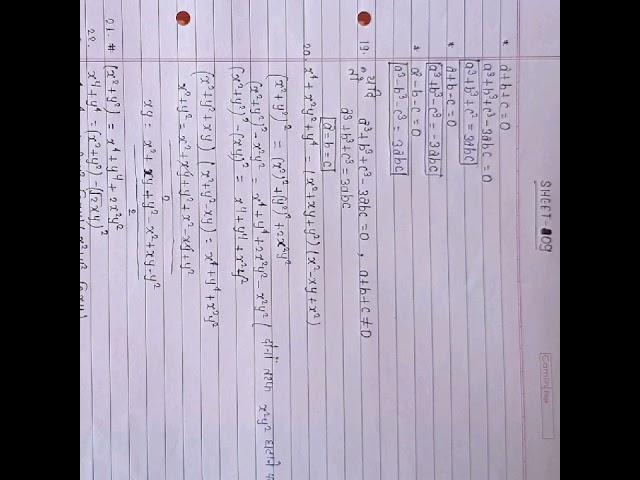 SHEET-09
* a+b+c=0
a³+b³+c³-3abc=0
a³+b³+c³=3abc
* a+b-c=0
a³+b³-c³=-3abc
* a-b-c=0
a³-b³-c³=3abc
19. यदि a³+b³+c³-3abc=0, a+b+c≠0
तो a³+b³+c³=3abc
a=b=c
20. x⁴+x²y²+y⁴=(x²+xy+y²)(x²-xy+x²)
(x²+y²)²=(x²)²+(y²)²+2x²y²
(x²+y²)²-x²y²=x⁴+y⁴+2x²y²-x²y² (दोनों तरफ x²y² घटाने
(x²+y²)²-(xy)²=x⁴+y⁴+x²y²
(x²+y²+xy)(x²+y²-xy)=x⁴+y⁴+x²y²
x²+y²=x²+xy+y²+x²-xy+y²
2
xy=x²+xy+y²-x²+xy-y²
2
21. # (x²+y²)=x⁴+y⁴+2x²y²
22. x⁴+y⁴=(x²+y²)-(√2xy)²